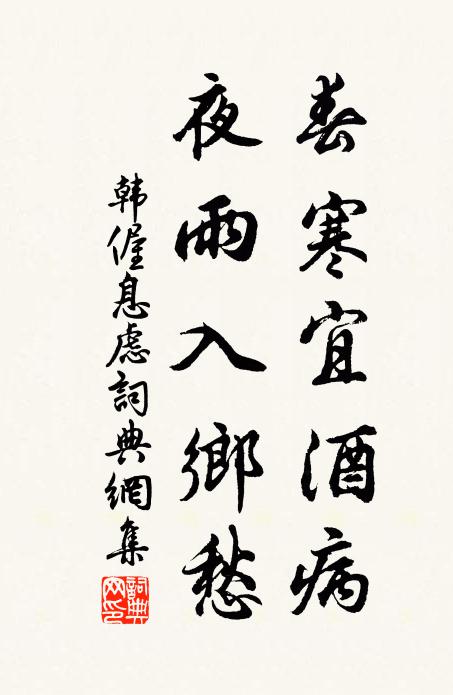 春寒宜酒病
夜雨入鄉愁
韓偓息慮詞典網集
詞典网印